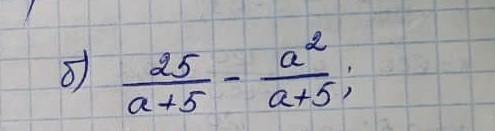 б) 25/(a+5) - a²/(a+5);